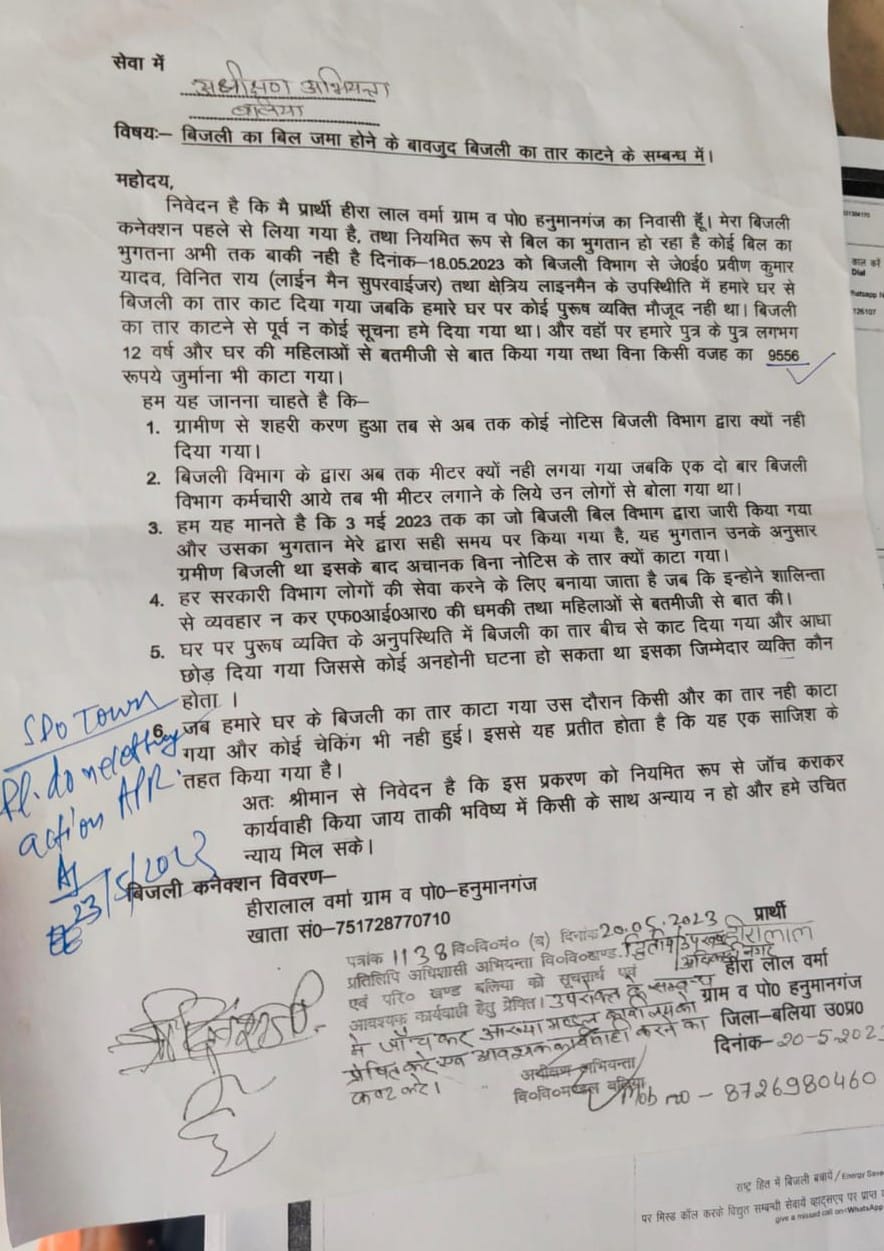 सेवा में
अधीक्षण अभियन्ता
बलिया
विषयः– बिजली का बिल जमा होने के बावजुद बिजली का तार काटने के सम्बन्ध में।
महोदय,
निवेदन है कि मै प्रार्थी हीरा लाल वर्मा ग्राम व पो0 हनुमानगंज का निवासी हूँ। मेरा बिजली
कनेक्शन पहले से लिया गया है, तथा नियमित रूप से बिल का भुगतान हो रहा है कोई बिल का
भुगतना अभी तक बाकी नही है दिनांक–18.05.2023 को बिजली विभाग से जे0ई0 प्रवीण कुमार
यादव, विनित राय (लाईन मैन सुपरवाईजर) तथा क्षेत्रिय लाइनमैन के उपस्थिीति में हमारे घर से
बिजली का तार काट दिया गया जबकि हमारे घर पर कोई पुरूष व्यक्ति मौजूद नही था। बिजली
का तार काटने से पूर्व न कोई सूचना हमे दिया गया था। और वहाँ पर हमारे पुत्र के पुत्र लगभग
12 वर्ष और घर की महिलाओं से बतमीजी से बात किया गया तथा विना किसी वजह का 9556
रूपये जुर्माना भी काटा गया।
हम यह जानना चाहते है कि–
1. ग्रामीण से शहरी करण हुआ तब से अब तक कोई नोटिस बिजली विभाग द्वारा क्यों नही
दिया गया।
2. बिजली विभाग के द्वारा अब तक मीटर क्यों नही लगया गया जबकि एक दो बार बिजली
विभाग कर्मचारी आये तब भी मीटर लगाने के लिये उन लोगों से बोला गया था।
3. हम यह मानते है कि 3 मई 2023 तक का जो बिजली बिल विभाग द्वारा जारी किया गया
और उसका भुगतान मेरे द्वारा सही समय पर किया गया है, यह भुगतान उनके अनुसार
ग्रमीण बिजली था इसके बाद अचानक बिना नोटिस के तार क्यों काटा गया।
4. हर सरकारी विभाग लोगों की सेवा करने के लिए बनाया जाता है जब कि इन्होने शालिन्ता
से व्यवहार न कर एफ0आई0आर0 की धमकी तथा महिलाओं से बतमीजी से बात की।
5. घर पर पुरूष व्यक्ति के अनुपस्थिति में बिजली का तार बीच से काट दिया गया और आधा
छोड़ दिया गया जिससे कोई अनहोनी घटना हो सकता था इसका जिम्मेदार व्यक्ति कौन
होता ।
6. जब हमारे घर के बिजली का तार काटा गया उस दौरान किसी और का तार नही काटा
गया और कोई चेकिंग भी नही हुई। इससे यह प्रतीत होता है कि यह एक साजिश के
तहत किया गया है।
अतः श्रीमान से निवेदन है कि इस प्रकरण को नियमित रूप से जाँच कराकर
कार्यवाही किया जाय ताकी भविष्य में किसी के साथ अन्याय न हो और हमे उचित
न्याय मिल सके।
SDO Town
Pl. do
action
23/5/2023
बिजली कनेक्शन विवरण–
हीरालाल वर्मा ग्राम व पो0–हनुमानगंज
खाता सं0–751728770710
प्रार्थी
हीरालाल
हीरा लाल वर्मा
ग्राम व पो0 हनुमानगंज
जिला–बलिया उ0प्र0
दिनांक–20-5-202
Mob no - 8726980460
पत्रांक 1138 वि0वि0मं0 (ब) दिनांक 20.05.2023
प्रतिलिपि अधिशासी अभियन्ता वि0वि0खण्ड
एवं परि0 खण्ड बलिया को सूचनार्थ एवं
आवश्यक कार्यवाही हेतु प्रेषित। उपरोक्त के सम्बन्ध
मे जाँच कर आख्या मण्डल कार्यालय को
प्रेषित करे एवं आवश्यक कार्यवाही करने का
कष्ट करे।
अधीक्षण अभियन्ता
वि0वि0मण्डल बलिया
काल करें
Dial
राष्ट्र हित में बिजली बचायें / Energy Save
पर मिस्ड कॉल करके विद्युत सम्बन्धी सेवायें व्हाट्सएप पर प्राप्त
give a missed call on WhatsApp